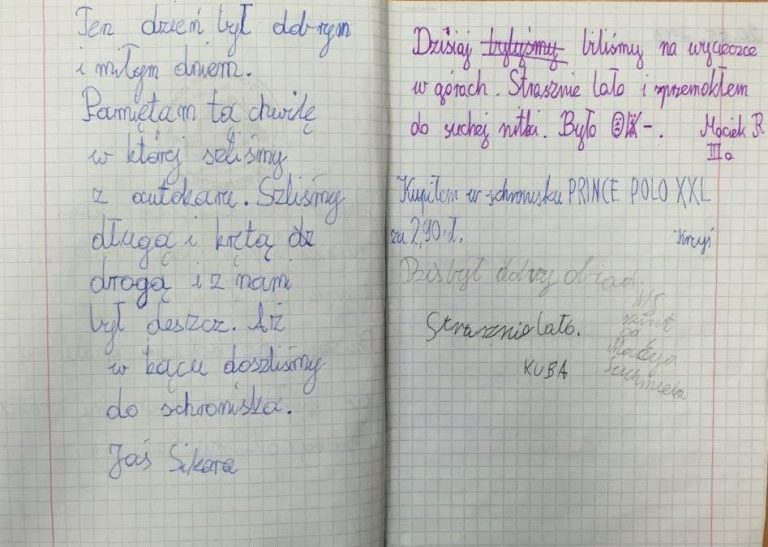 Ten dzień był dobrym
i miłym dniem.
Pamiętam ta chwilę
w której szliśmy
z autokaru. Szliśmy
długą i krętą dz
drogą i z nami
był deszcz. Aż
w kącu doszliśmy
do schroniska.
Jaś Sikora
Dzisiaj byłyśmy biliśmy na wycieczce
w górach. Strasznie lało i zprzemokłem
do suchej nitki. Było OK-.
Maciek R
IIIa
Kupiłem w schronisku PRINCE POLO XXL
za 2,90 zł.
Dziś był dobry obiad
Strasznie lało.
KUBA